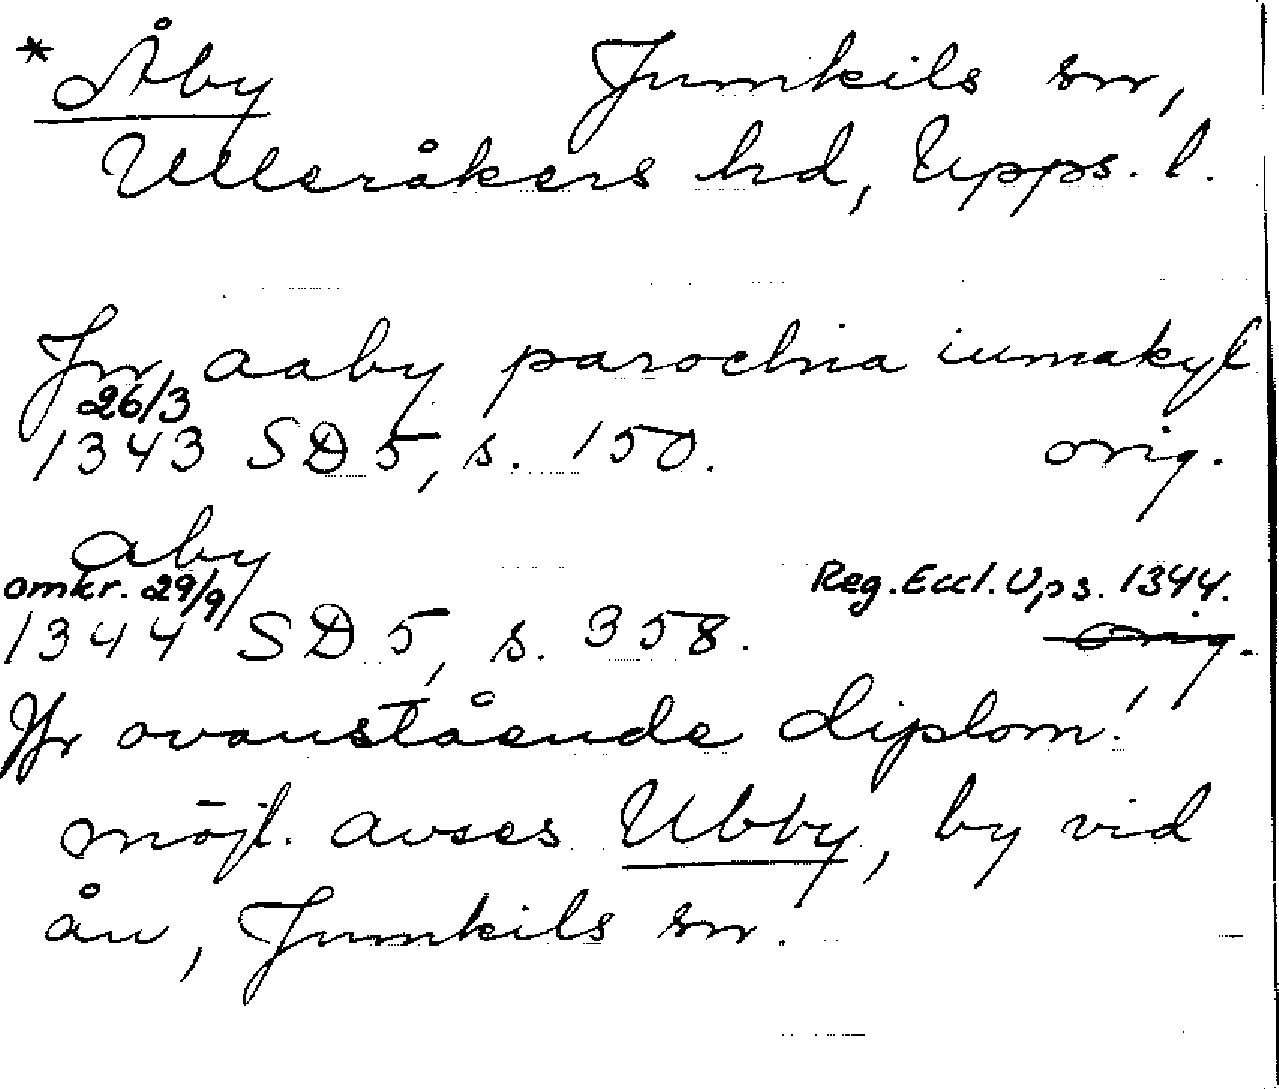 * Åby Jumkils sn,
Ulleråkers hd, Upps. l.
Jn aaby parochia iumakyl
26/3
1343 SD 5, s. 150. orig.
aby
omkr. 29/9 Reg. Eccl. Ups. 1344.
1344 SD 5, s. 358. orig.
Jfr ovanstående diplom!
möjl. avses Ubby, by vid
ån, Jumkils sn.